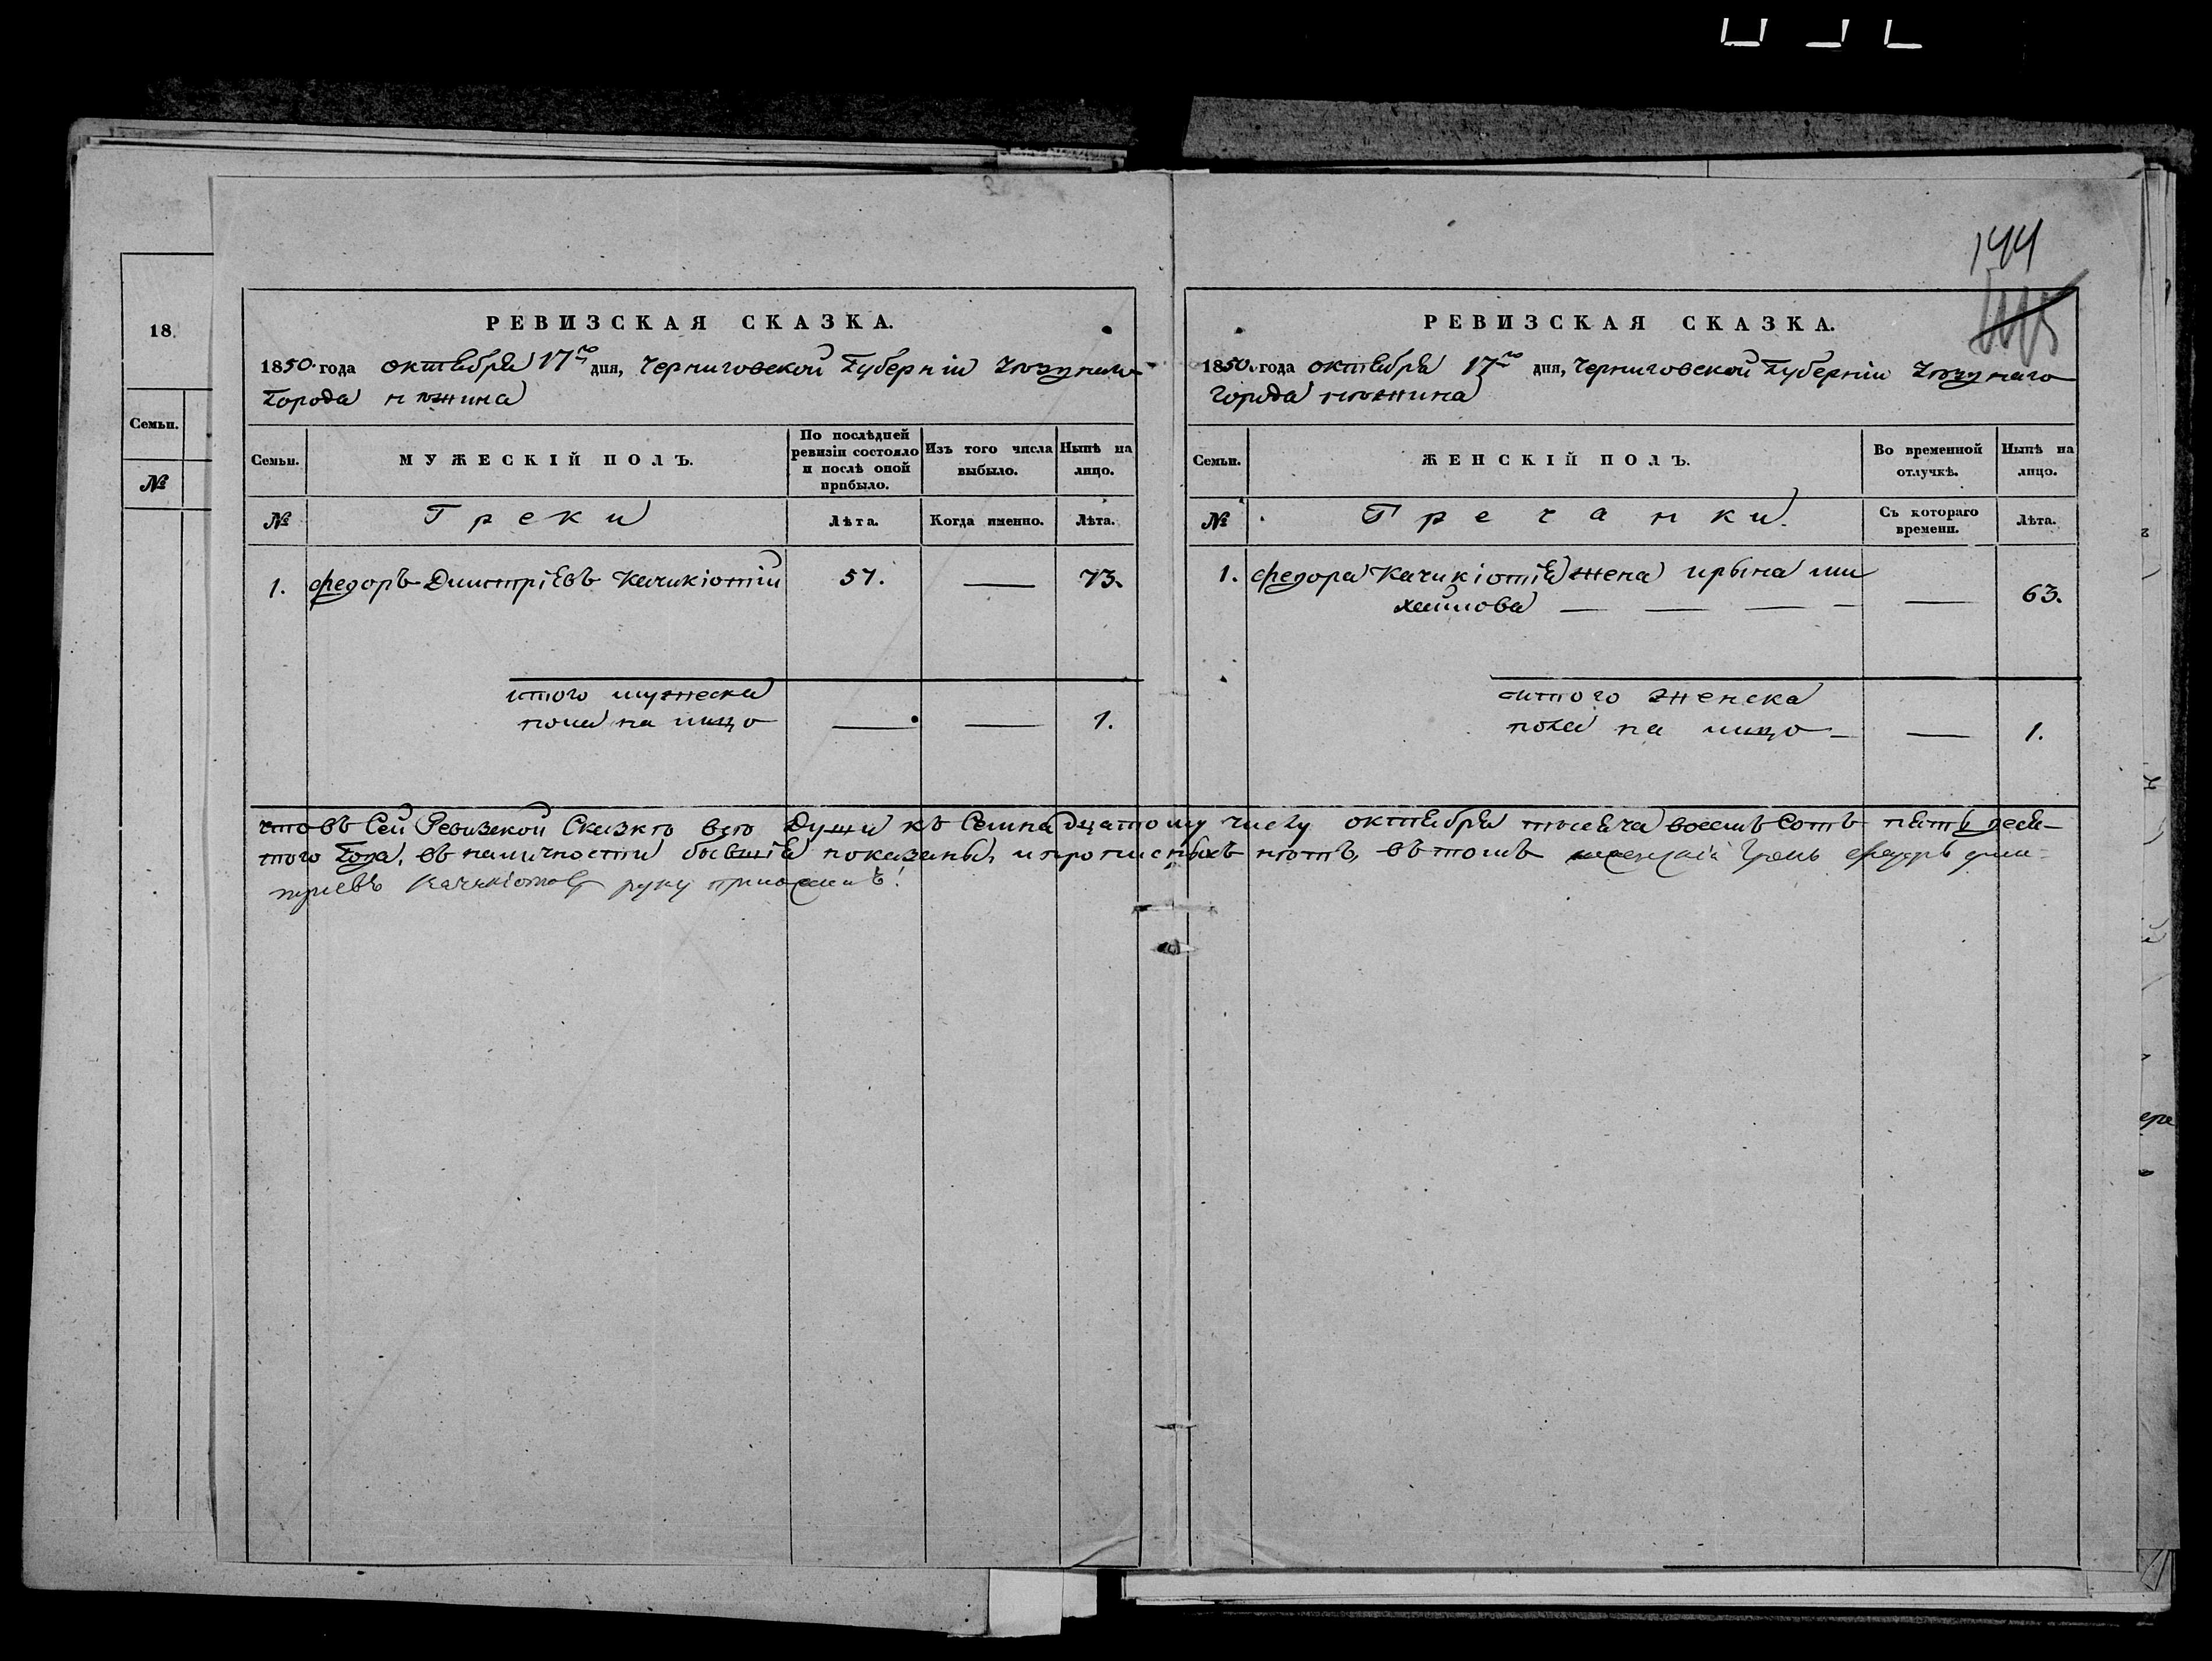 144
18
Семьи.
№
РЕВИЗСКАЯ СКАЗКА.
1850. года октября 17го дня, Черниговской Губерніи Уѣзднаго
Города нѣжина
Семьи.
МУЖЕСКІЙ ПОЛЪ.
По послѣдней ревизіи состояло и послѣ оной прибыло.
Изъ того числа выбыло.
Нынѣ на лицо.
№
Греки
Лѣта.
Когда именно.
Лѣта.
1. федоръ Димитріевъ Качикіотій 57. — 73.
итого мужеска
пола на лицо — — 1.
РЕВИЗСКАЯ СКАЗКА.
1850. года октября 17го дня, Черниговской Губерніи Уѣзднаго
города нѣжина
Семьи.
ЖЕНСКІЙ ПОЛЪ.
Во временной отлучкѣ.
Нынѣ на лицо.
№
Гречанки.
Съ котораго времени.
Лѣта.
1. федора Качикіотія жена ирына ми
хайлова — — — — — 63.
итого женска
пола на лицо — — 1.
что въ Сей Ревизской Сказкѣ всѣ Души къ Семнадцатому числу октября тысяча восемъ Сотъ пять деся-
того Года, въ наличности бывшія показаны, и прописныхъ нѣтъ, въ томъ Грекъ федоръ дими
тріевъ руку приложилъ!